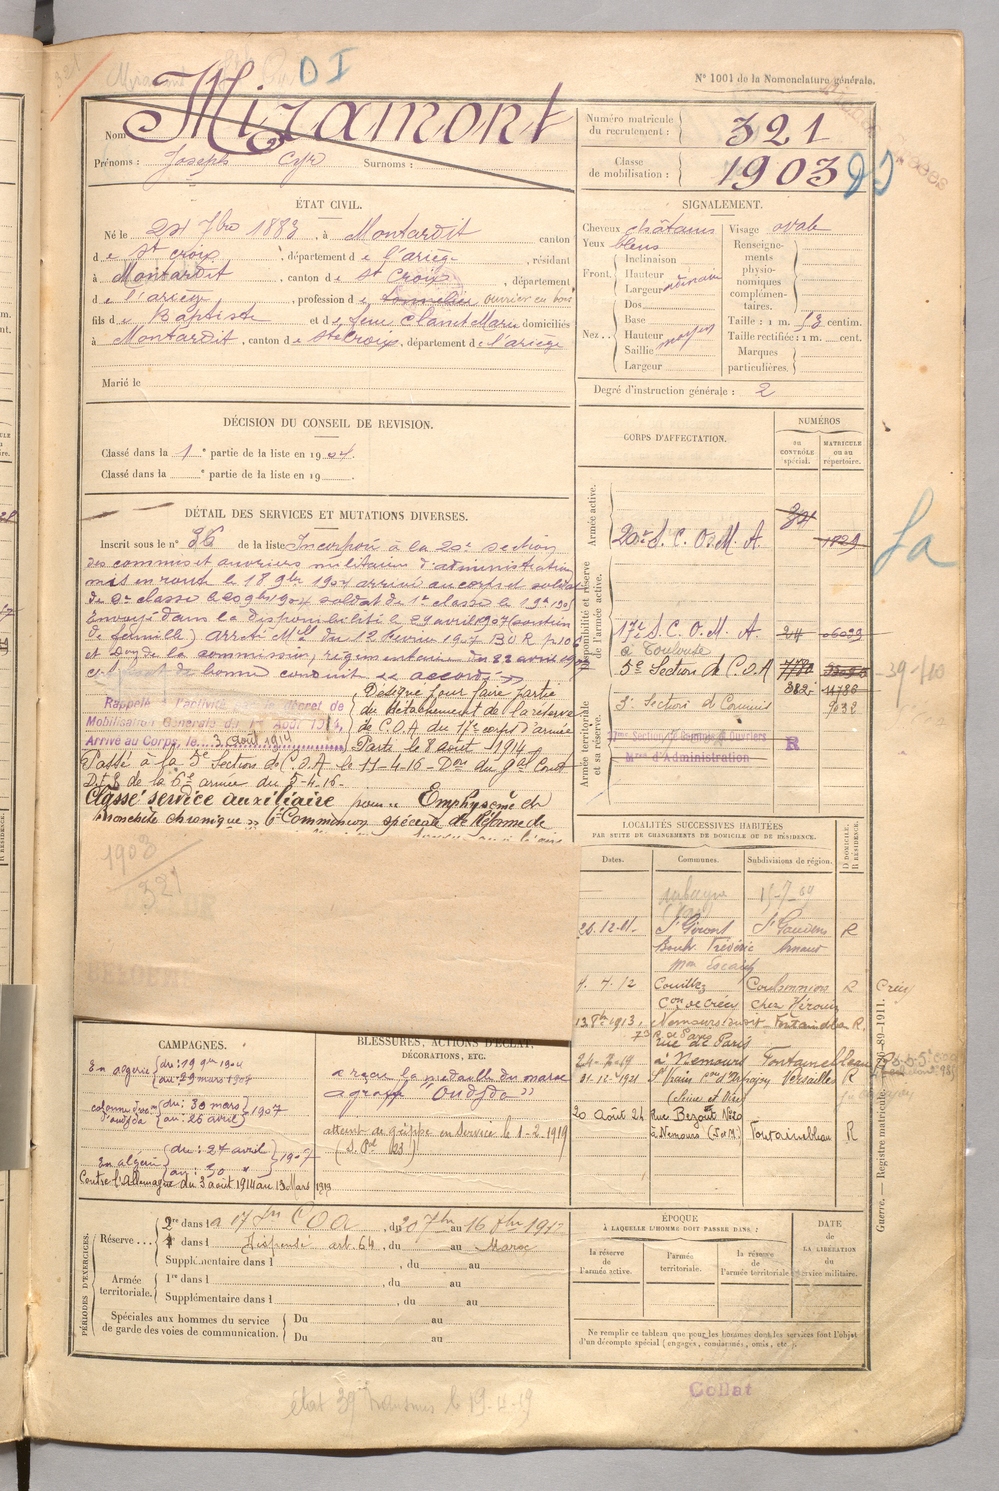 D I
N° 1001 de la Nomenclature générale.
Nom Miramont
Prénoms : Joseph Cyr Surnoms :
Numéro matricule du recrutement : 321
Classe de mobilisation : 1903
ÉTAT CIVIL.
Né le 24 7bre 1883, à Montardit canton
de St Croix, département de l'ariège, résidant
à Montardit, canton de St Croix, département
de l'ariège, profession de tonnelier ouvrier en bois
fils de Baptiste et de feu Claret Marie domiciliés
à Montardit, canton de Ste Croix, département de l'ariège
Marié le
SIGNALEMENT.
Cheveux châtains Visage ovale
Yeux bleus
Front. Inclinaison
Hauteur
Largeur
Nez. Dos
Base
Hauteur moyen
Saillie
Largeur
Renseignements physionomiques complémentaires.
Taille : 1 m. centim.
Taille rectifiée : 1 m. cent.
Marques particulières.
Degré d'instruction générale : 2
DÉCISION DU CONSEIL DE REVISION.
Classé dans la 1e partie de la liste en 1904.
Classé dans la e partie de la liste en 19
DÉTAIL DES SERVICES ET MUTATIONS DIVERSES.
Inscrit sous le n° 36 de la liste Incorporé à la 20e section
des commis et ouvriers militaires d'administration
mis en route le 18 9bre 1904 arrivé au corps et soldat
de 2e classe le 20 9bre 1904 soldat de 1e classe le
Envoyé dans la disponibilité le 29 avril 1907 (soutien
de famille) arrêté Mel du 12 février 1907 B O R
et Don de la commission, régimentaire du
de bonne conduite "accordé"
Rappelé à l'activité par le décret de
Mobilisation Générale du 1er Août 1914,
Arrivé au Corps, le 3 Août 1914
Désigné pour faire partie
du détachement de la réserve
de C.O.A du 17e corps d'armée
Parti le 8 août 1914
Passé à la 5e Section de C.O.A le 11-4-16 - Don du gal Cont
de la 6e armée du 5-4-16-
Classé service auxiliaire pour "Emphysème et
bronchite chronique" Commission spéciale de Réforme de
1903
321
CORPS D'AFFECTATION.
NUMÉROS
au CONTRÔLE spécial.
MATRICULE ou au répertoire.
Armée active.
20e S. C. O. M. A. 1829
Disponibilité et réserve de l'armée active.
17e S. C. O. M. A. 24
à Toulouse
5e Section de C.O.A
Armée territoriale et sa réserve.
Section de Commis
17me Section de Commis & Ouvriers
Mres d'Administration
R
La
LOCALITÉS SUCCESSIVES HABITÉES
PAR SUITE DE CHANGEMENTS DE DOMICILE OU DE RÉSIDENCE.
Dates. Communes. Subdivisions de région. D. DOMICILE. R. RÉSIDENCE.
20-12-11- St Girons St Gaudens R
4. 4. 12 Couilly Coulommiers R
Con de Crécy chez
1913. Nemours Fontainebleau R.
rue de Paris
24-2-19 à Nemours Fontainebleau
01-12-1921 St Vrain con d'Arpajon Versailles R
(Seine et Oise)
20 Août 24 Rue Bezout N°20
à Nemours (S et M) Fontainebleau R
Guerre. — Registre matricule.
CAMPAGNES.
En algérie du : 19 9bre 1904
au : 29 mars 1907
colonne d'oudjda du : 30 mars
au : 26 avril 1907
En algérie du : 27 avril
au : 30 " 1907
Contre l'Allemagne du 3 août 1914 au 13 Mars 1919
BLESSURES, ACTIONS D'ÉCLAT,
DÉCORATIONS, ETC.
a reçu la médaille du maroc
agraffe "Oudjda"
atteint de grippe en service le 1-2-1919
PÉRIODES D'EXERCICES.
Réserve . . . 2e dans la 17 Son C O A, du 7bre au 16 1912
1e dans l Dispensé art. 64, du au Maroc
Supplémentaire dans l , du au
Armée territoriale. 1re dans l , du au
Supplémentaire dans l , du au
Spéciales aux hommes du service de garde des voies de communication. Du au
Du au
ÉPOQUE
À LAQUELLE L'HOMME DOIT PASSER DANS :
la réserve de l'armée active.
l'armée territoriale.
la réserve de l'armée territoriale
DATE de LA LIBÉRATION du service militaire.
Ne remplir ce tableau que pour les hommes dont les services font l'objet
d'un décompte spécial (engagés, condamnés, omis, etc.).
Collat
état 39 transmis le 19-4-19